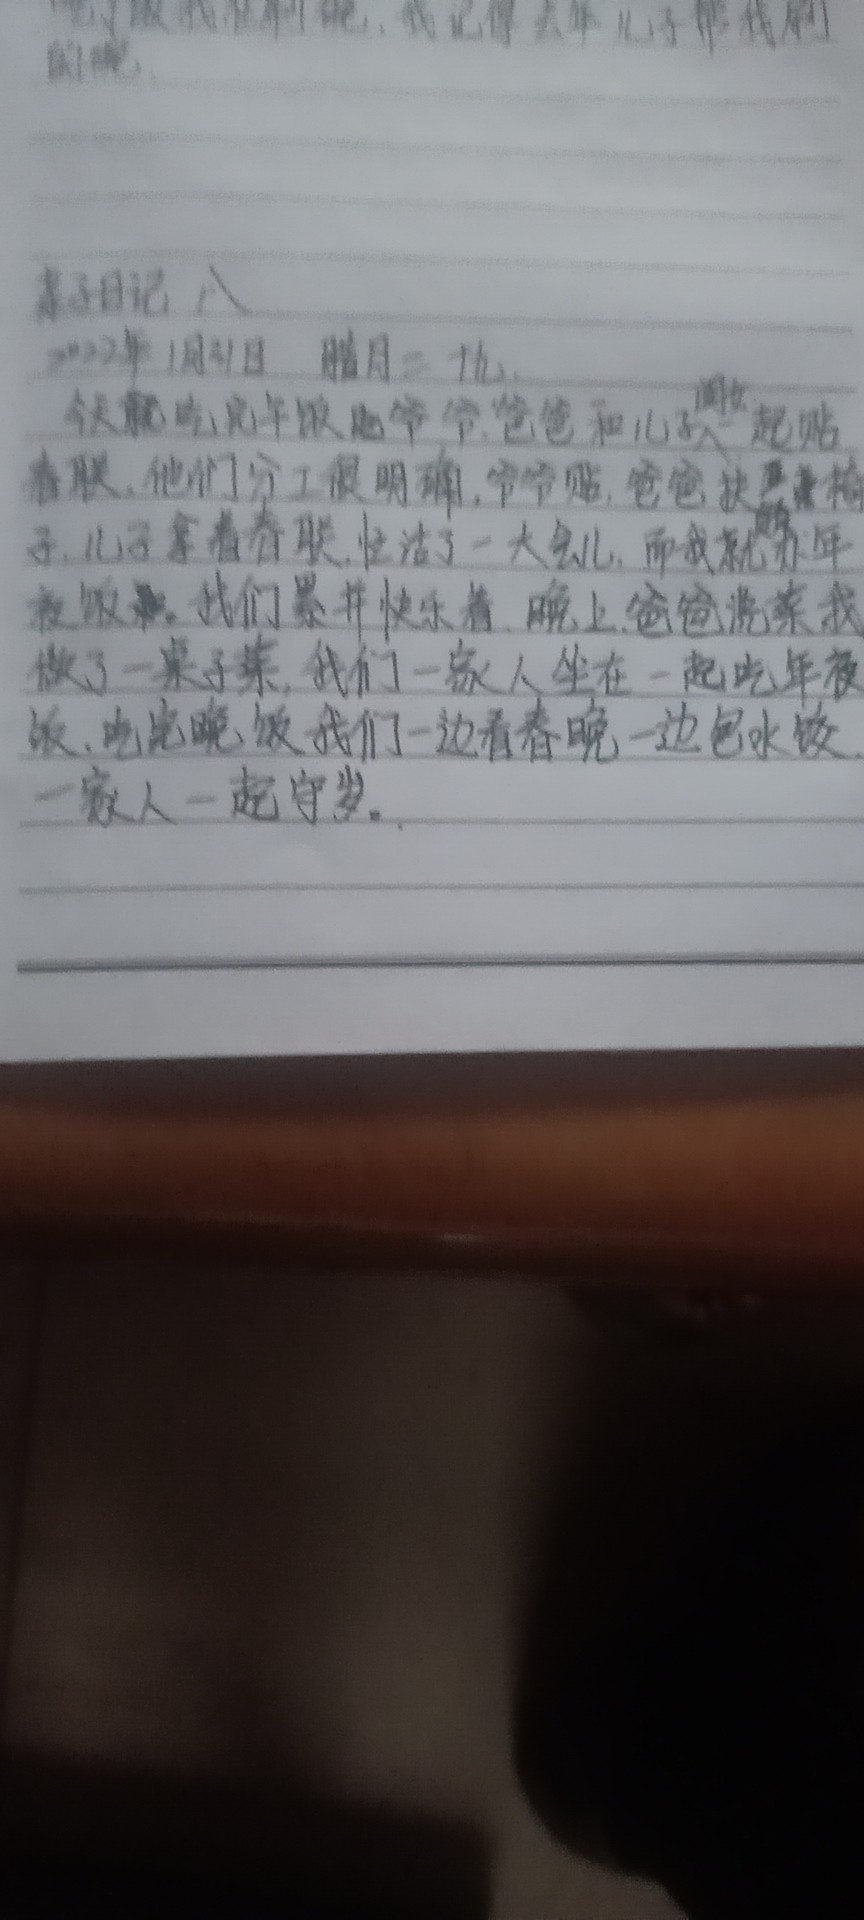 我记得去年儿子帮我刷
的呢.
亲子日记 八
2022年1月31日 腊月二十九.
今天吃完午饭 爷爷.爸爸和儿子闺女一起贴
春联.他们分工很明确,爷爷贴.爸爸扶着梯
子.儿子拿着春联.忙活了一大会儿.而我就办年
夜饭。我们累并快乐着.晚上.爸爸洗菜我
做了一桌子菜,我们一家人坐在一起吃年夜
饭.吃完晚饭我们一边看春晚一边包水饺.
一家人一起守岁。